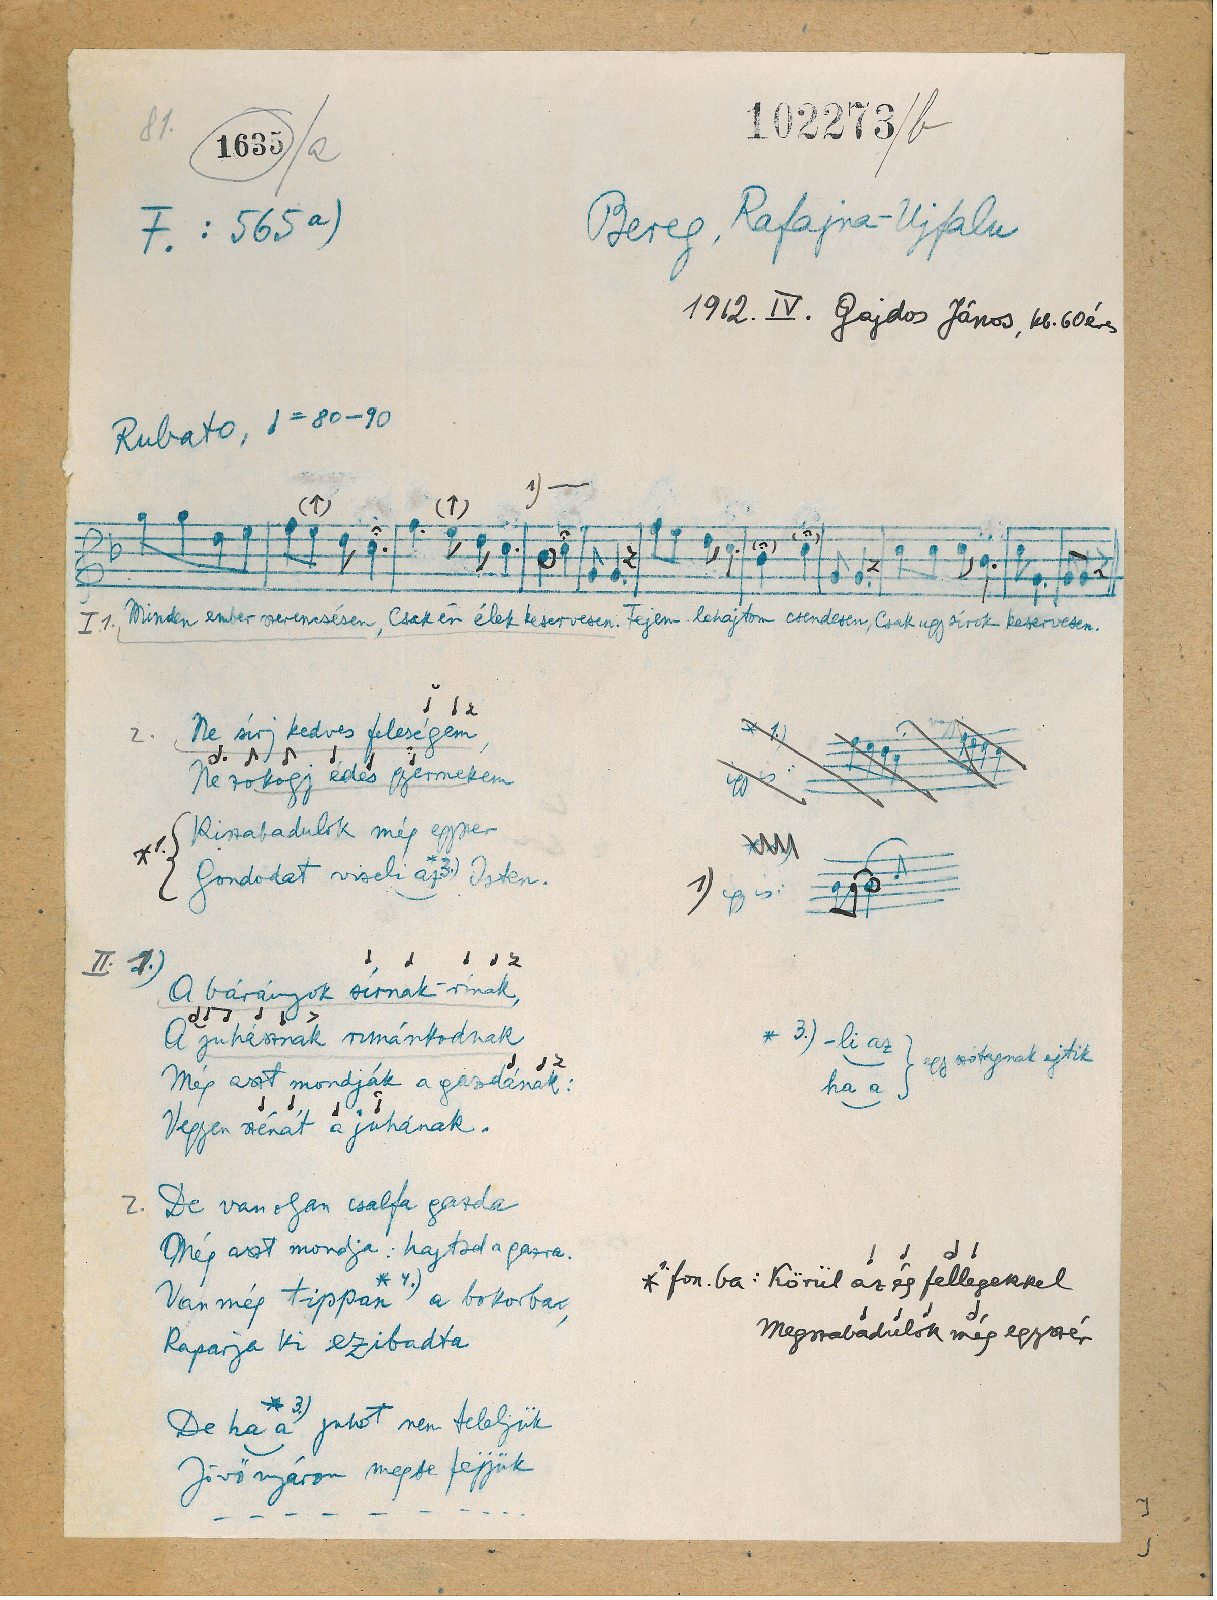 81.
1635/a
102273/b
F. : 565 a)
Bereg, Rafajna-Ujfalu
1912. IV. Gajdos János, kb. 60 éves
Rubato, ♩ = 80-90
(↑) (↑) 1)
I. 1. Minden ember szerencsésen, Csak én élek keservesen. Fejem lehajtom csendesen, Csak ugy sirok keservesen.
2. Ne sirj kedves feleségem,
Ne zokogj édes gyermekem
*1. Kiszabadulok még egyszer
Gondodat viseli az *3.) Isten.
* 1.)
így is:
1) így is:
II. 1.)
A bárányok sírnak-rínak,
A juhásznak rimánkodnak
Még aszt mondják a gazdának:
Vegyen szénát a juhának.
* 3.) -li az
ha a
egy szótagnak ejtik
2. De van olyan csalfa gazda
Még aszt mondja: hajtsd a gazra.
Van még tippan *4.) a bokorba,
Kaparja ki ezibadta
*1. fon.ba: Körül az ég fellegekkel
Megszabadulok még egyszér
De ha a *3.) juhot nem teleljük
Jövő nyáron megse fejjük